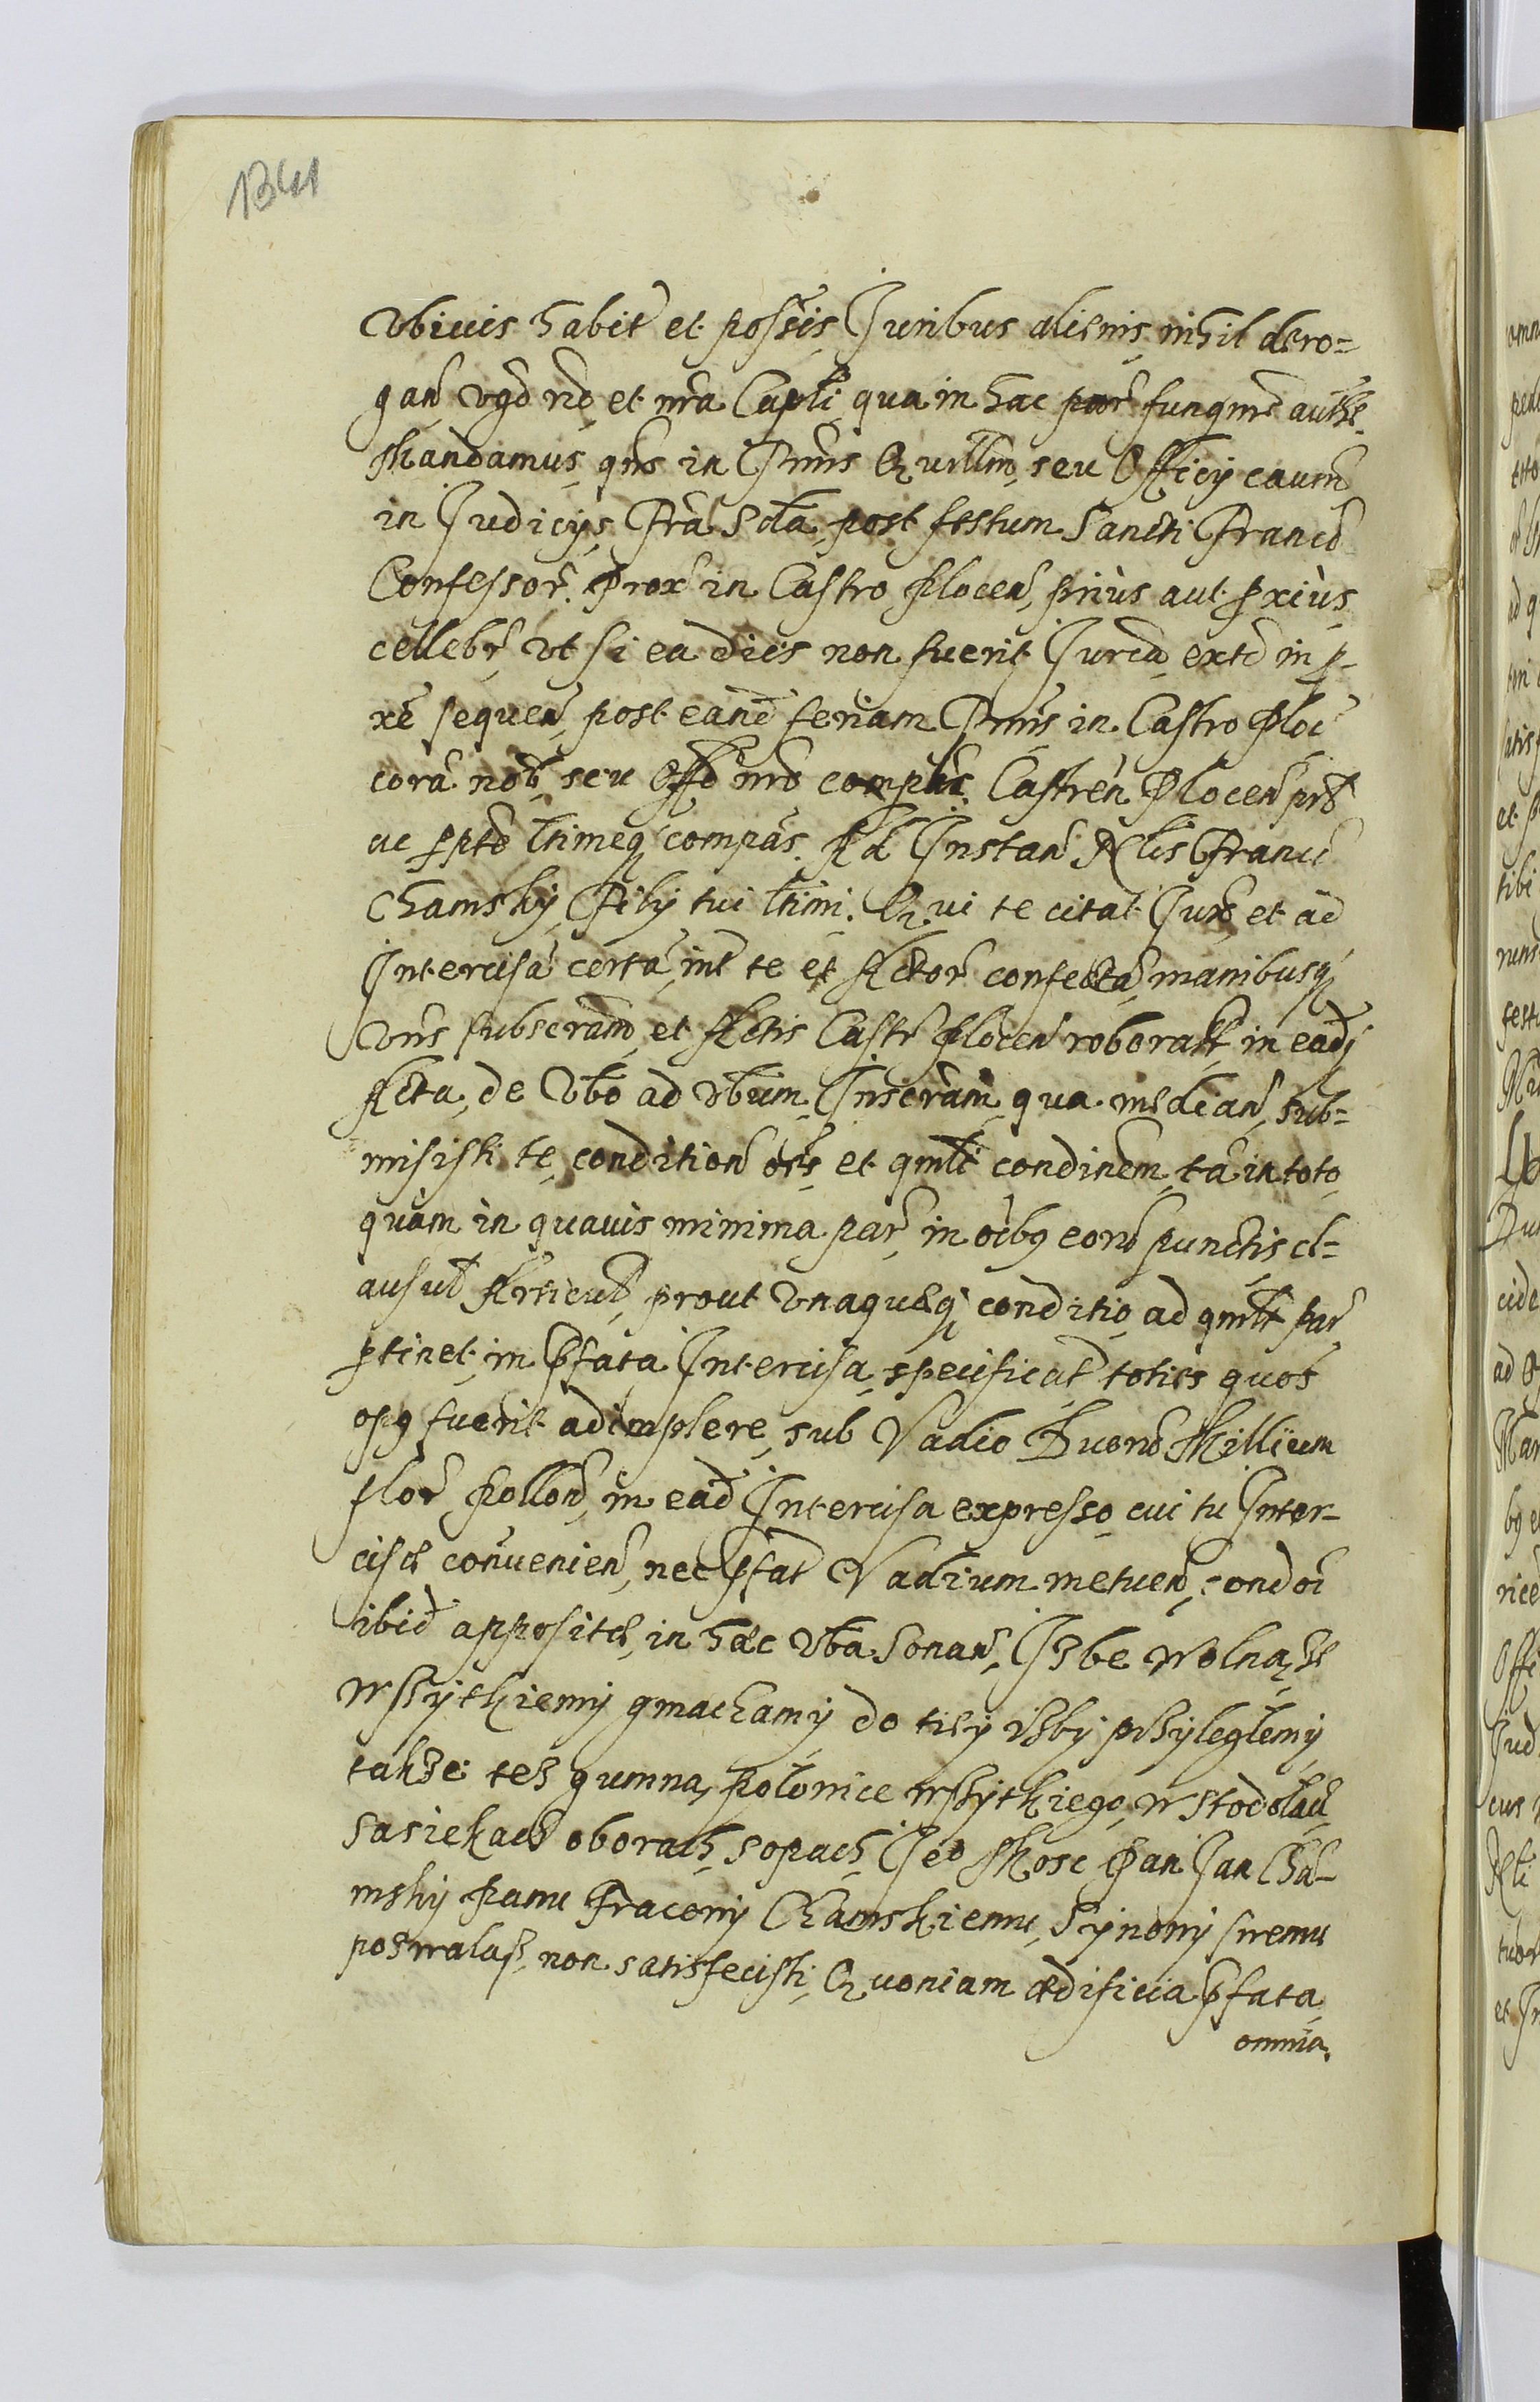 1341
Vbiuis habit et possis Iuribus alienis nihil dero=
gan vgd nõ et nrã Capli qua in hac parr fungmr authe
Mandamus qrs in Trmis Qurllm, seu Officij caurm
in Iudicijs Fra Scda post festum Sancti Francis
Confessor. Prox in Castro Plocen, prius aut pxius
cellebr vt si ea dies non fuerit Iurca exto in p-
xe sequen, post eand feriam Trmis in Castro Ploc
cora nob seu Offo nro compti Castren Plocen prs
ac ppto ltimeq compas. Ad Instan Nlis Franci
Chamsky Filij tui ltimi. Qui te citat Iuxs et ad
Intercisa certa int te et Actor confecta manibusq
Vris subscram et Actis Castr Plocen roboratt in eadj
Acta, de Vbo ad Vbum Inscram qua median, sub=
misisti te condition oes et qmlt condinem ta in toto
quam in quauis minima par in oibq eoru punctis cl=
ausul Articul prout Vnaquæq conditio ad qmlt par
ptinet in pfata Intercisa specificat toties quot
opq fuerit adimplere sub Vadio Duoru Millium
flor Pollon, in ead Intercisa expresso cui tu Inter-
cisæ conuenien, nec pfat Vadium metuen, condoi
ibid appositæ, in hæc Vba Sonan, Izbe wolną ze
wszytkiemy gmachamy do tiey izby przyległemy
takze tez gumna, połowice wszytkiego w stodołach
sasiekach oborach, sopach Jeo Mosc Pan Jan Cha-
msky Panu Fracowy Chamskiemu, Synowy swemu
pozwalasz non satisfecisti, Quoniam ædificia pfata
omnia.